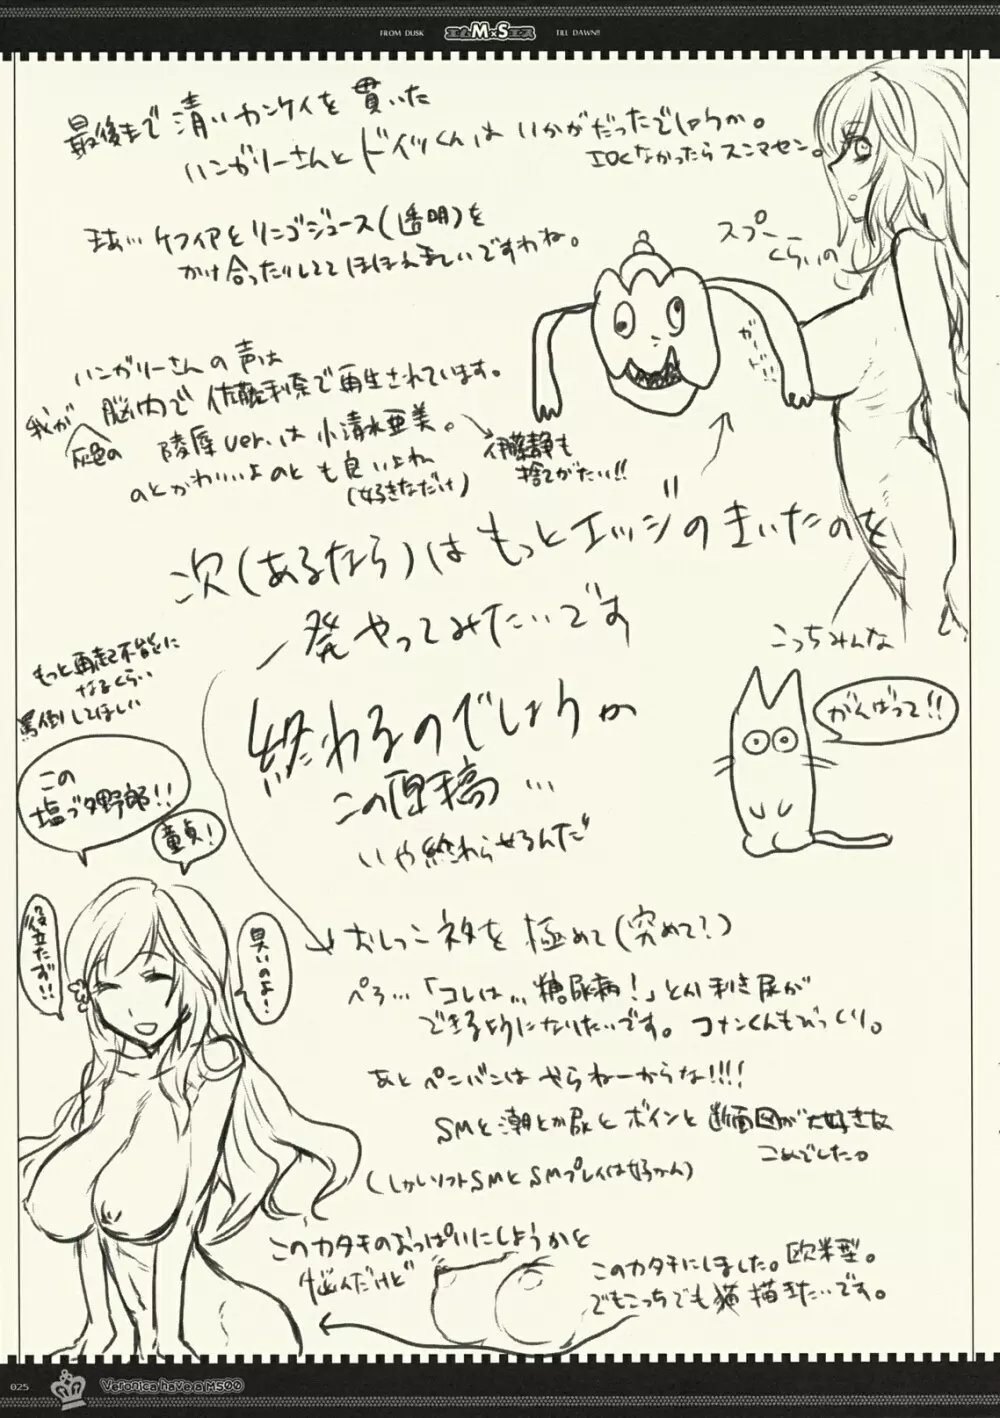 FROM DUSK
エムM×Sエス
TILL DAWN!!
最後まで清いカンケイを貫いた
ハンガリーさんとドイツくんは いかがだったでしょうか。
エロくなかったらスンマセン。
まあ… ケフィアとリンゴジュース(透明)を
かけ合ったりしててほほえましいですわね。
スプー
くらいの
ハンガリーさんの声は
我が 脳内で 佐藤利奈で再生されています。
灰色の
陵辱ver.は 小清水亜美。
伊藤静も
捨てがたい!!
のとかわいいよのと も良いよね
(好きなだけ)
次(あるなら)はもっとエッジのきいたのを
一発やってみたいです
こっちみんな
がんばって!!
もっと再起不能に
なるくらい
罵倒してほしい
終わるのでしょうか
この原稿…
いや終わらせるんだ
この
塩ブタ野郎!!
童貞!
役立たず!!
臭いのよー
おしっこネタを 極めて(究めて?)
ペろ…「コレは…糖尿病!」とか利き尿が
できるようになりたいです。コナンくんもびっくり。
あと ペンバンは やらねーからな!!!!
SMと潮とか尿と ボインと 断面図が大好きな
こめでした。
(しかしソフトSMと SMプレイは好かん)
このカタチのおっぱいにしようかを
悩んだけど
このカタチにしました。欧米型。
でもこっちでも猫描きたいです。
025
Veronica have a M500